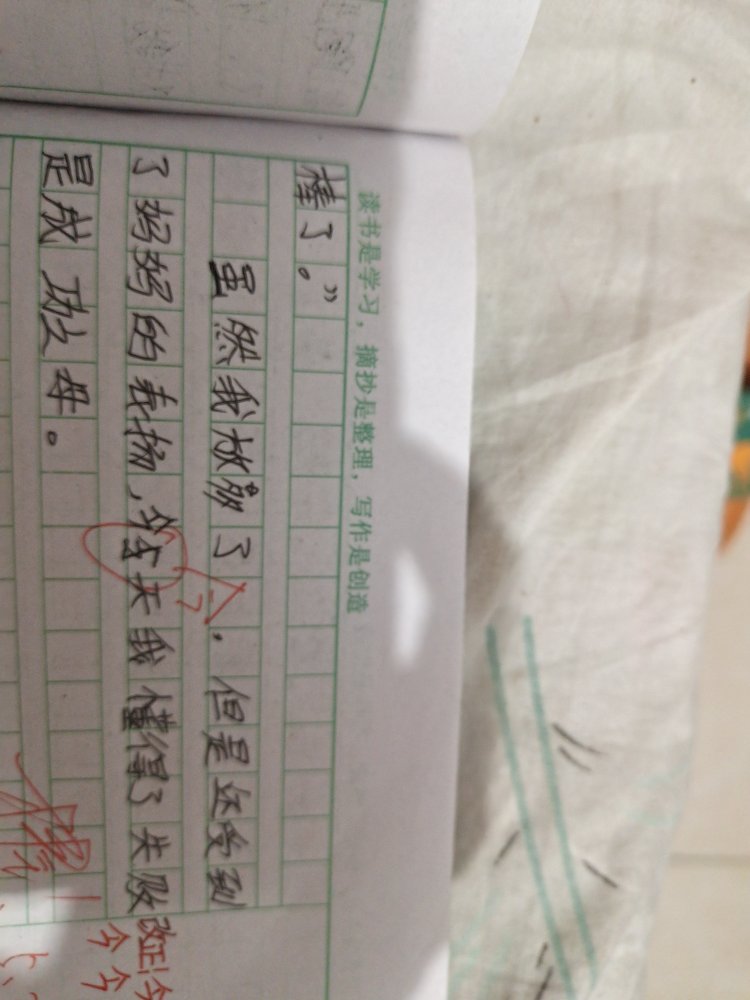 读书是学习，摘抄是整理，写作是创造
棒了。”
虽然我了，但是还受到
今
了妈妈的表扬，今天我懂得了失败
是成功之母。
改正：今
今今
棒！